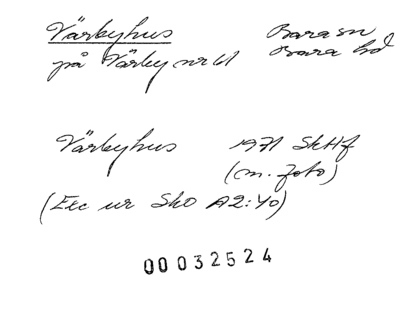 Värbyhus Bara sn
på Värby nr 61 Bara hd
Värbyhus 1971 SkHf
(m. foto)
(Exc ur SkO A2:40)
00032524